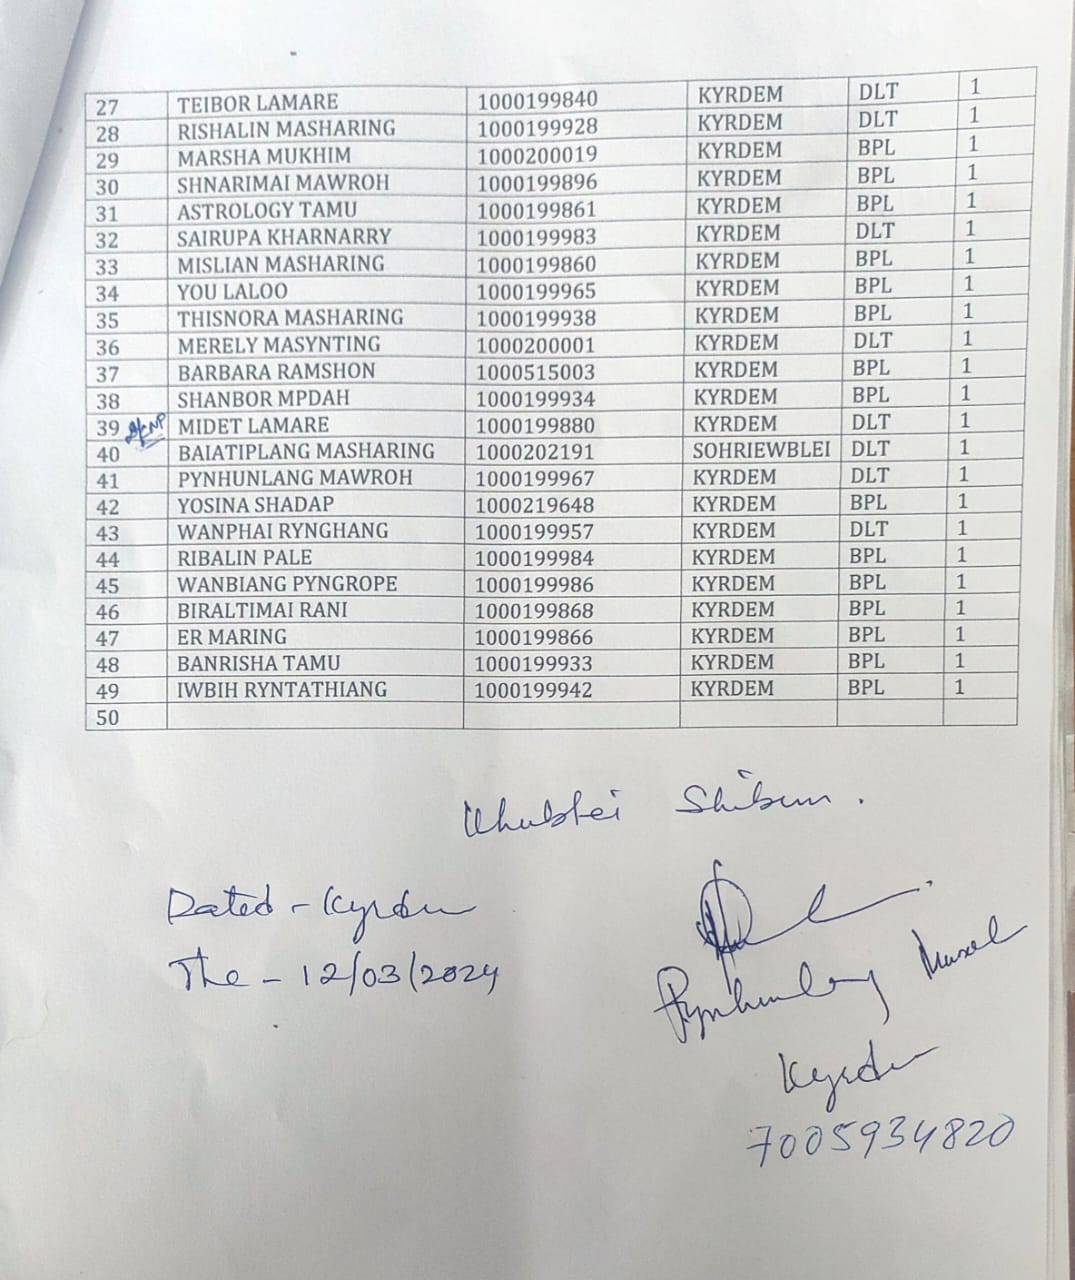 27 TEIBOR LAMARE 1000199840 KYRDEM DLT 1
28 RISHALIN MASHARING 1000199928 KYRDEM DLT 1
29 MARSHA MUKHIM 1000200019 KYRDEM BPL 1
30 SHNARIMAI MAWROH 1000199896 KYRDEM BPL 1
31 ASTROLOGY TAMU 1000199861 KYRDEM BPL 1
32 SAIRUPA KHARNARRY 1000199983 KYRDEM DLT 1
33 MISLIAN MASHARING 1000199860 KYRDEM BPL 1
34 YOU LALOO 1000199965 KYRDEM BPL 1
35 THISNORA MASHARING 1000199938 KYRDEM BPL 1
36 MERELY MASYNTING 1000200001 KYRDEM DLT 1
37 BARBARA RAMSHON 1000515003 KYRDEM BPL 1
38 SHANBOR MPDAH 1000199934 KYRDEM BPL 1
39 MIDET LAMARE 1000199880 KYRDEM DLT 1
40 BAIATIPLANG MASHARING 1000202191 SOHRIEWBLEI DLT 1
41 PYNHUNLANG MAWROH 1000199967 KYRDEM DLT 1
42 YOSINA SHADAP 1000219648 KYRDEM BPL 1
43 WANPHAI RYNGHANG 1000199957 KYRDEM DLT 1
44 RIBALIN PALE 1000199984 KYRDEM BPL 1
45 WANBIANG PYNGROPE 1000199986 KYRDEM BPL 1
46 BIRALTIMAI RANI 1000199868 KYRDEM BPL 1
47 ER MARING 1000199866 KYRDEM BPL 1
48 BANRISHA TAMU 1000199933 KYRDEM BPL 1
49 IWBIH RYNTATHIANG 1000199942 KYRDEM BPL 1
50
Khublei Shibun.
Dated - Kyrdem
The - 12/03/2024
Pynhunlang
Kyrdem
7005934820